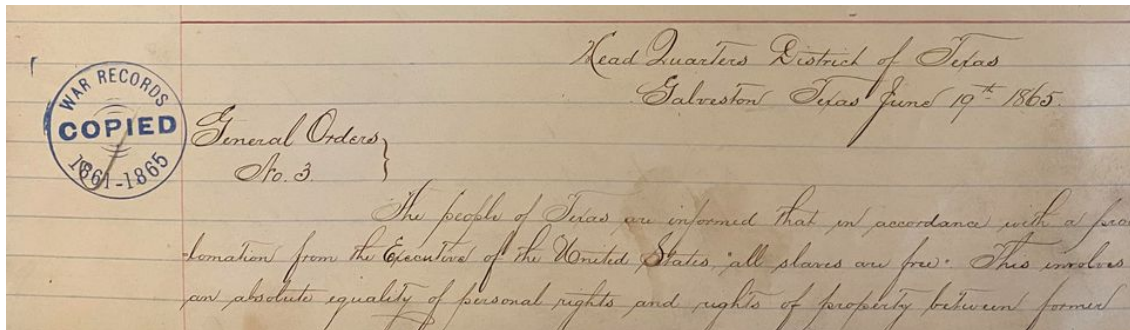 Head Quarters District of Texas
Galveston Texas June 19th 1865.
WAR RECORDS
COPIED
1861-1865
General Orders
No. 3.
The people of Texas are informed that in accordance with a pro
-lamation from the Executive of the United States, "all slaves are free." This involves
an absolute equality of personal rights and rights of property between former